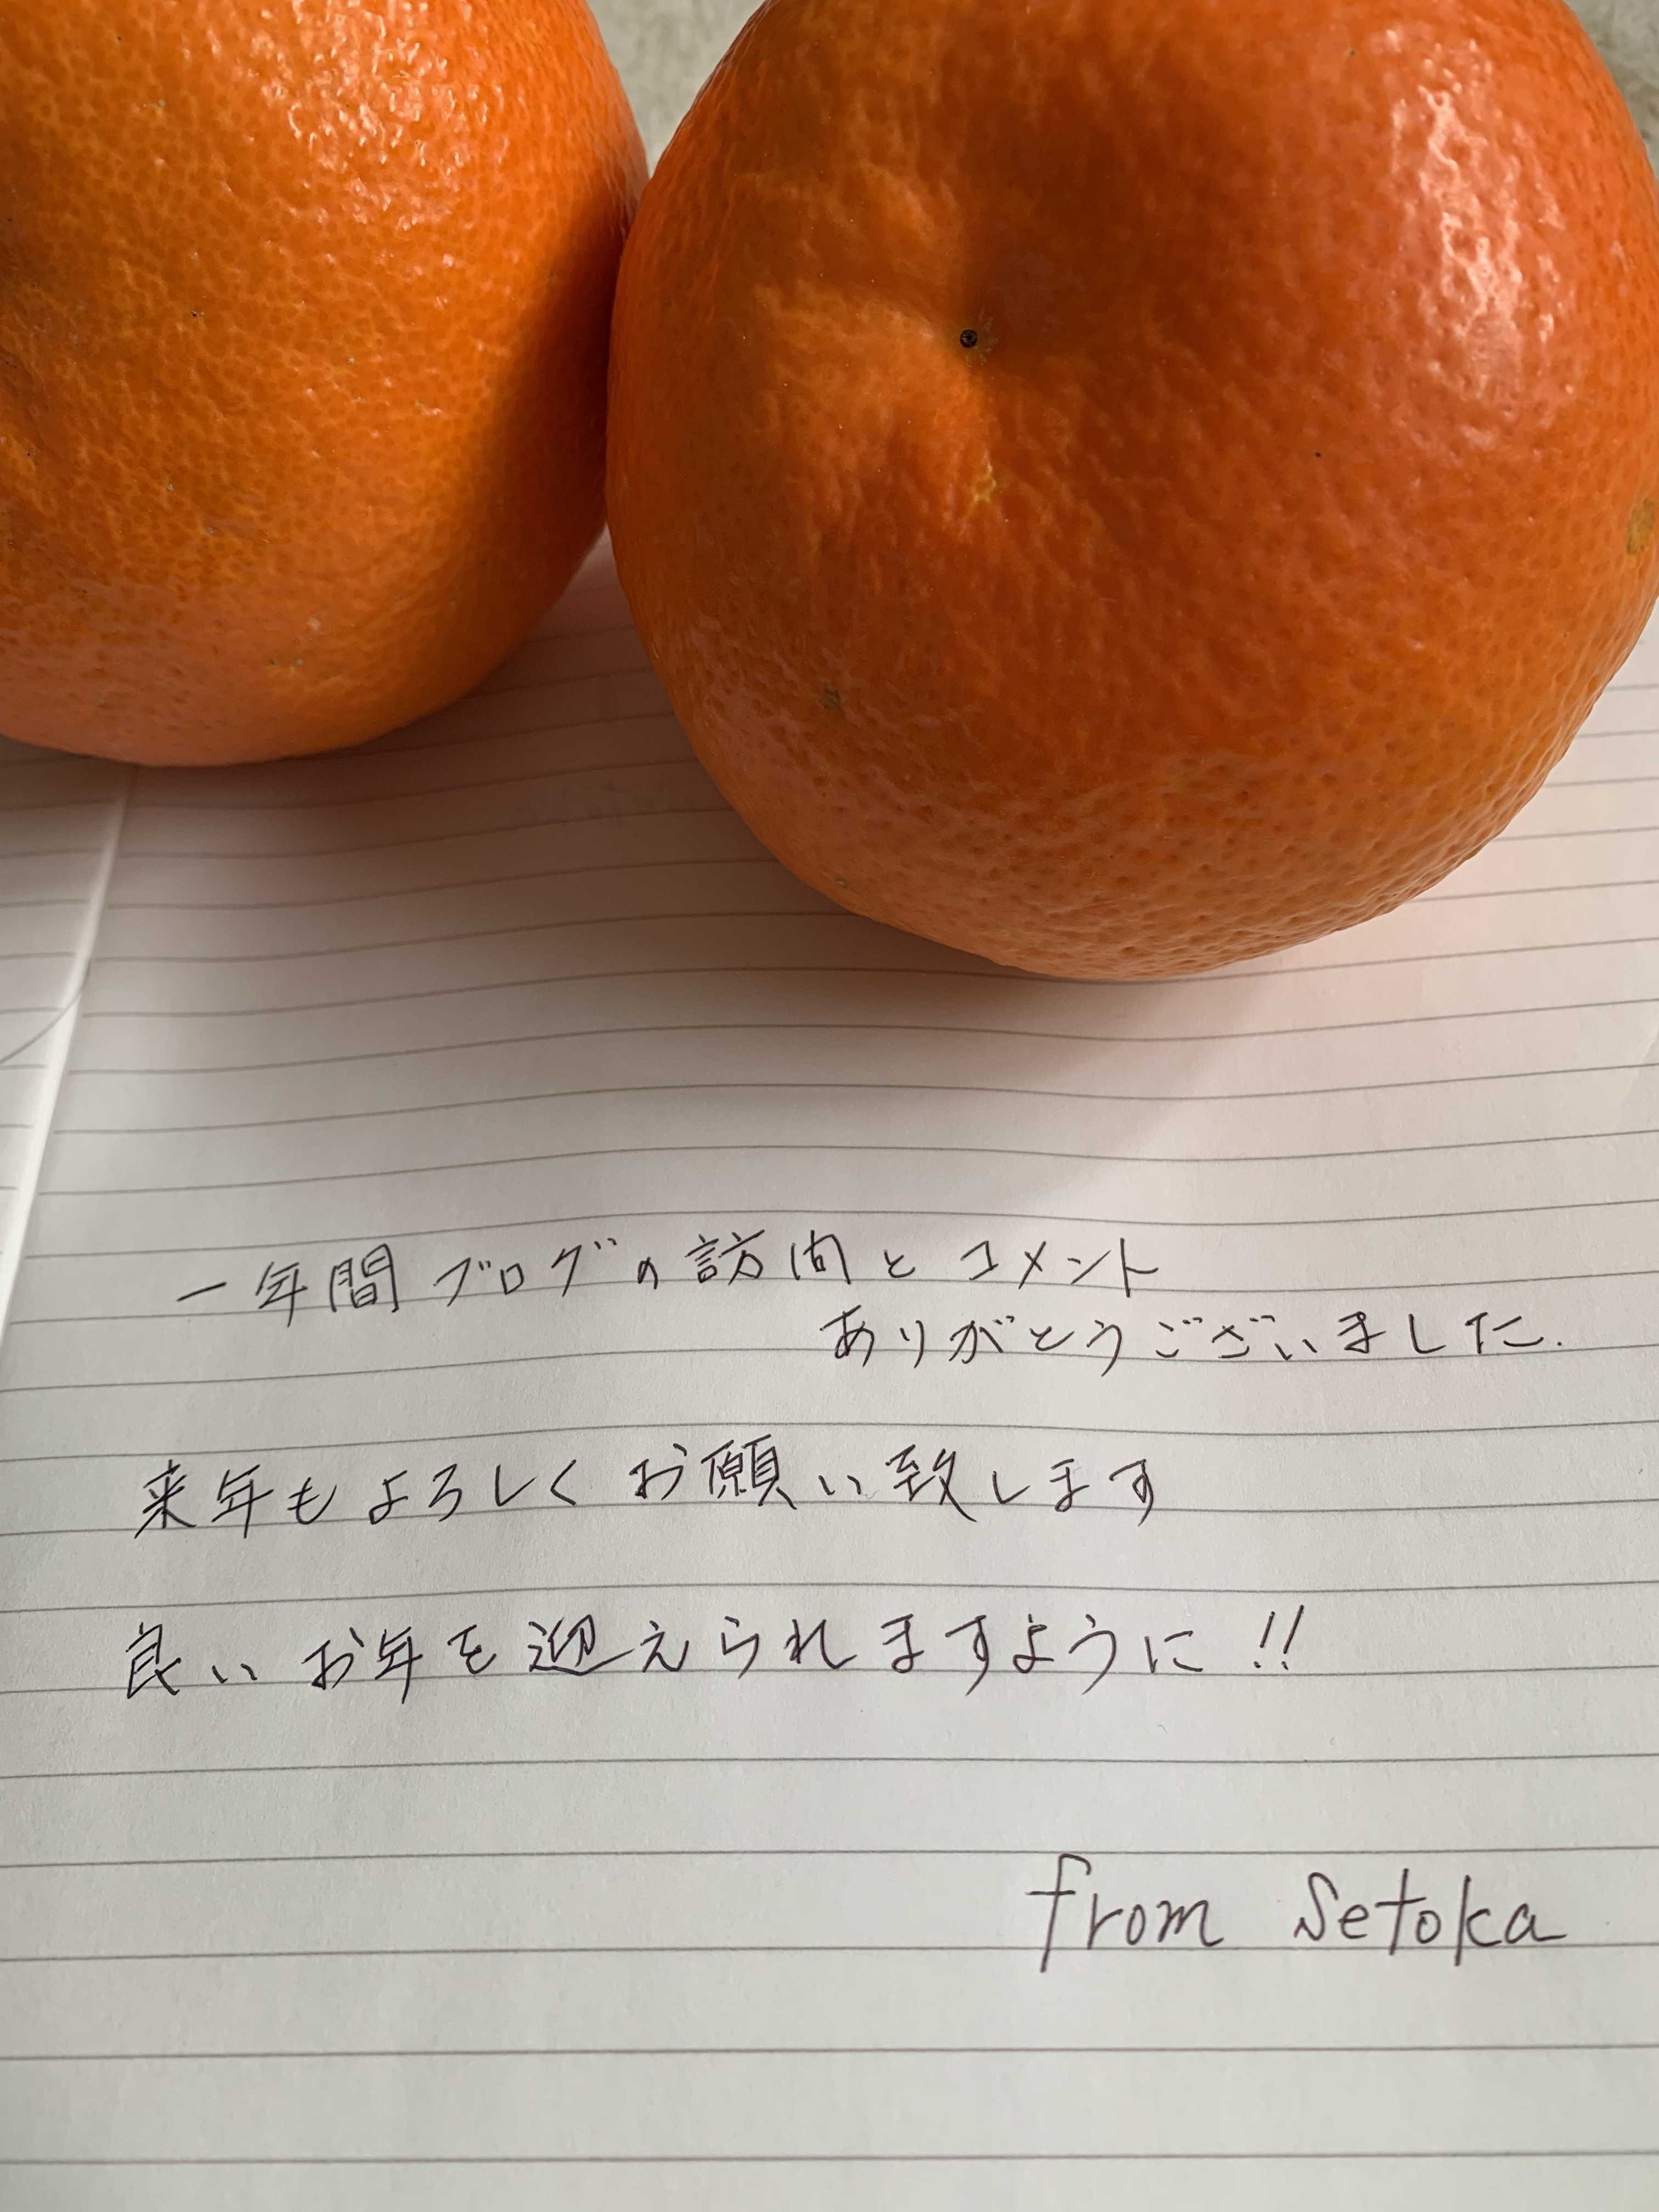 一年間ブログの訪問とコメント
ありがとうございました.
来年もよろしくお願い致します
良いお年を迎えられますように!!
from Setoka